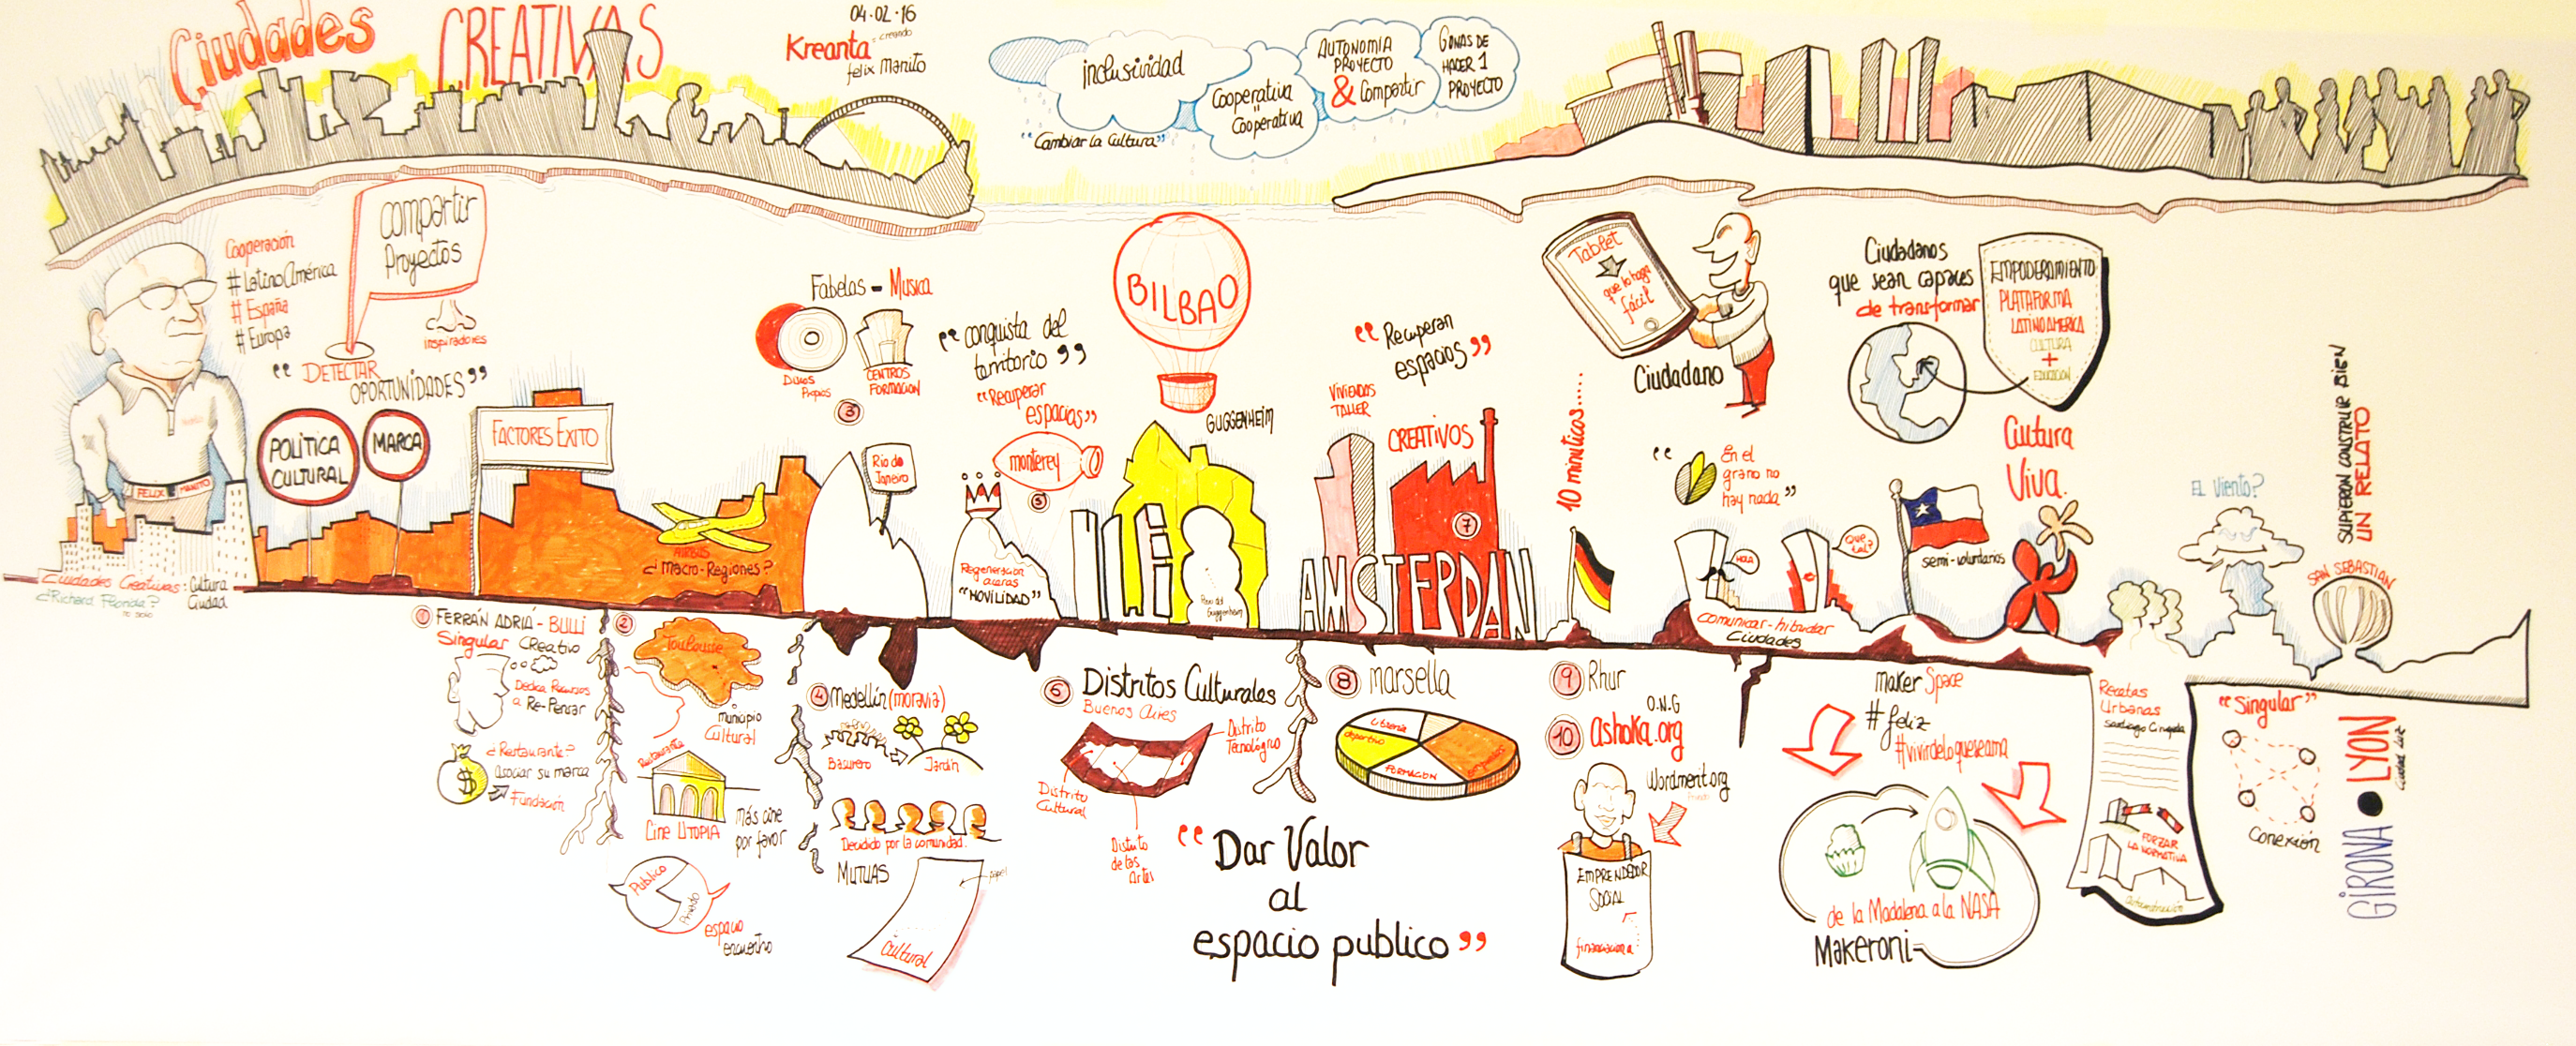 Ciudades
CREATIVAS
04.02.16
Kreanta
creando
felix Manito
inclusividad
"Cambiar la Cultura"
Cooperativa
Cooperativa
AUTONOMIA
PROYECTO
& Compartir
GANAS DE
HACER 1
PROYECTO
Cooperación
#LatinoAmérica
#España
#Europa
Compartir
Proyectos
inspiradores
"DETECTAR
OPORTUNIDADES"
POLÍTICA
CULTURAL
MARCA
FACTORES EXITO
FELIX MANITO
Ciudades Creativas: Cultura
Ciudad
¿Richard Florida?
AIRBUS
¿Macro-Regiones?
Fabelas - Musica
Discos
Propios
CENTROS
FORMACIÓN
3
Río de
Janeiro
"conquista del
territorio"
"Recuperar
espacios"
monterey
5
Regeneración
aceras
"MOVILIDAD"
BILBAO
GUGGENHEIM
Perro del
Guggenheim
"Recuperan
espacios"
VIVIENDAS
TALLER
CREATIVOS
7
AMSTERDAN
10 minuticos....
Tablet
que lo haga
fácil
Ciudadano
"En el
grano no
hay nada"
HOLA
Que
tal?
Comunicar-hibridar
Ciudades
Ciudadanos
que sean capaces
de transformar
EMPODERAMIENTO
PLATAFORMA
LATINOAMERICA
CULTURA
+
EDUCACION
Cultura
Viva.
semi-voluntarios
EL Viento?
SUPIERON CONSTRUIR BIEN
UN RELATO
SAN SEBASTIAN
1 FERRÁN ADRIÁ - BULLI
Singular Creativo
Dedica Recursos
a Re-Pensar
¿Restaurante?
asociar su marca
Fundación
2
Toulouse
municipio
Cultural
Restaurante
Cine UTOPIA
más cine
por favor
Publico
Privado
espacio
encuentro
4 Medellín (moravia)
Basurero
Jardín
Decidido por la comunidad.
MUTUAS
papel
Cultural
6 Distritos Culturales
Buenos Aires
Distrito
Tecnológico
Distrito
Cultural
Distrito
de las
Artes
"Dar Valor
al
espacio publico"
8 marsella
deportivo
FORMACION
9 Rhur
O.N.G
10 ashoka.org
Wordmerit.org
EMPRENDEDOR
SOCIAL
financiación
maker Space
#feliz
#vivirdeloqueseama
de la Madalena a la NASA
Makeroni
Recetas
Urbanas
Santiago Cirugeda
FORZAR
LA NORMATIVA
"Singular"
Conexión
GIRONA • LYON
Ciudad Luz